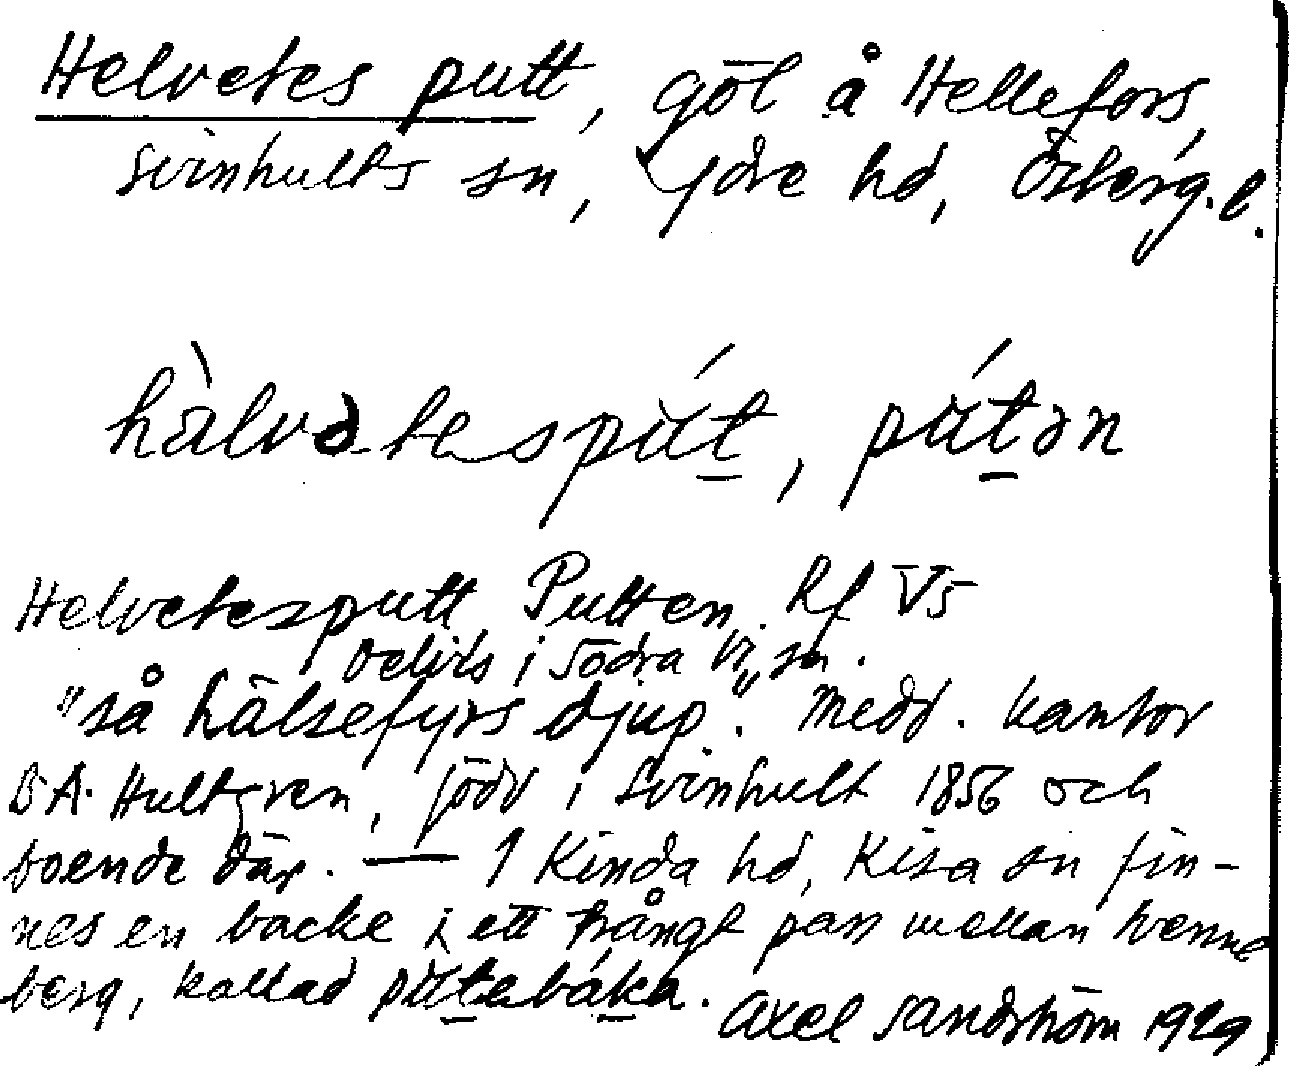 Helvetes putt, göl å Hellefors,
Svinhults sn, Ydre hd, Österg. l.
hàlvətespút, pútən
Helvetesputt, Putten. Rf V5
Delvis i Södra Vi sn.
"så hälsefyrs djup." Medd. kantor
A. Hultgren, född i Svinhult 1856 och
boende där. — I Kinda hd, Kisa sn fin-
nes en backe i ett trångt pass mellan tvenne
berg, kallad pùtebáka.
Axel Sandström 1929